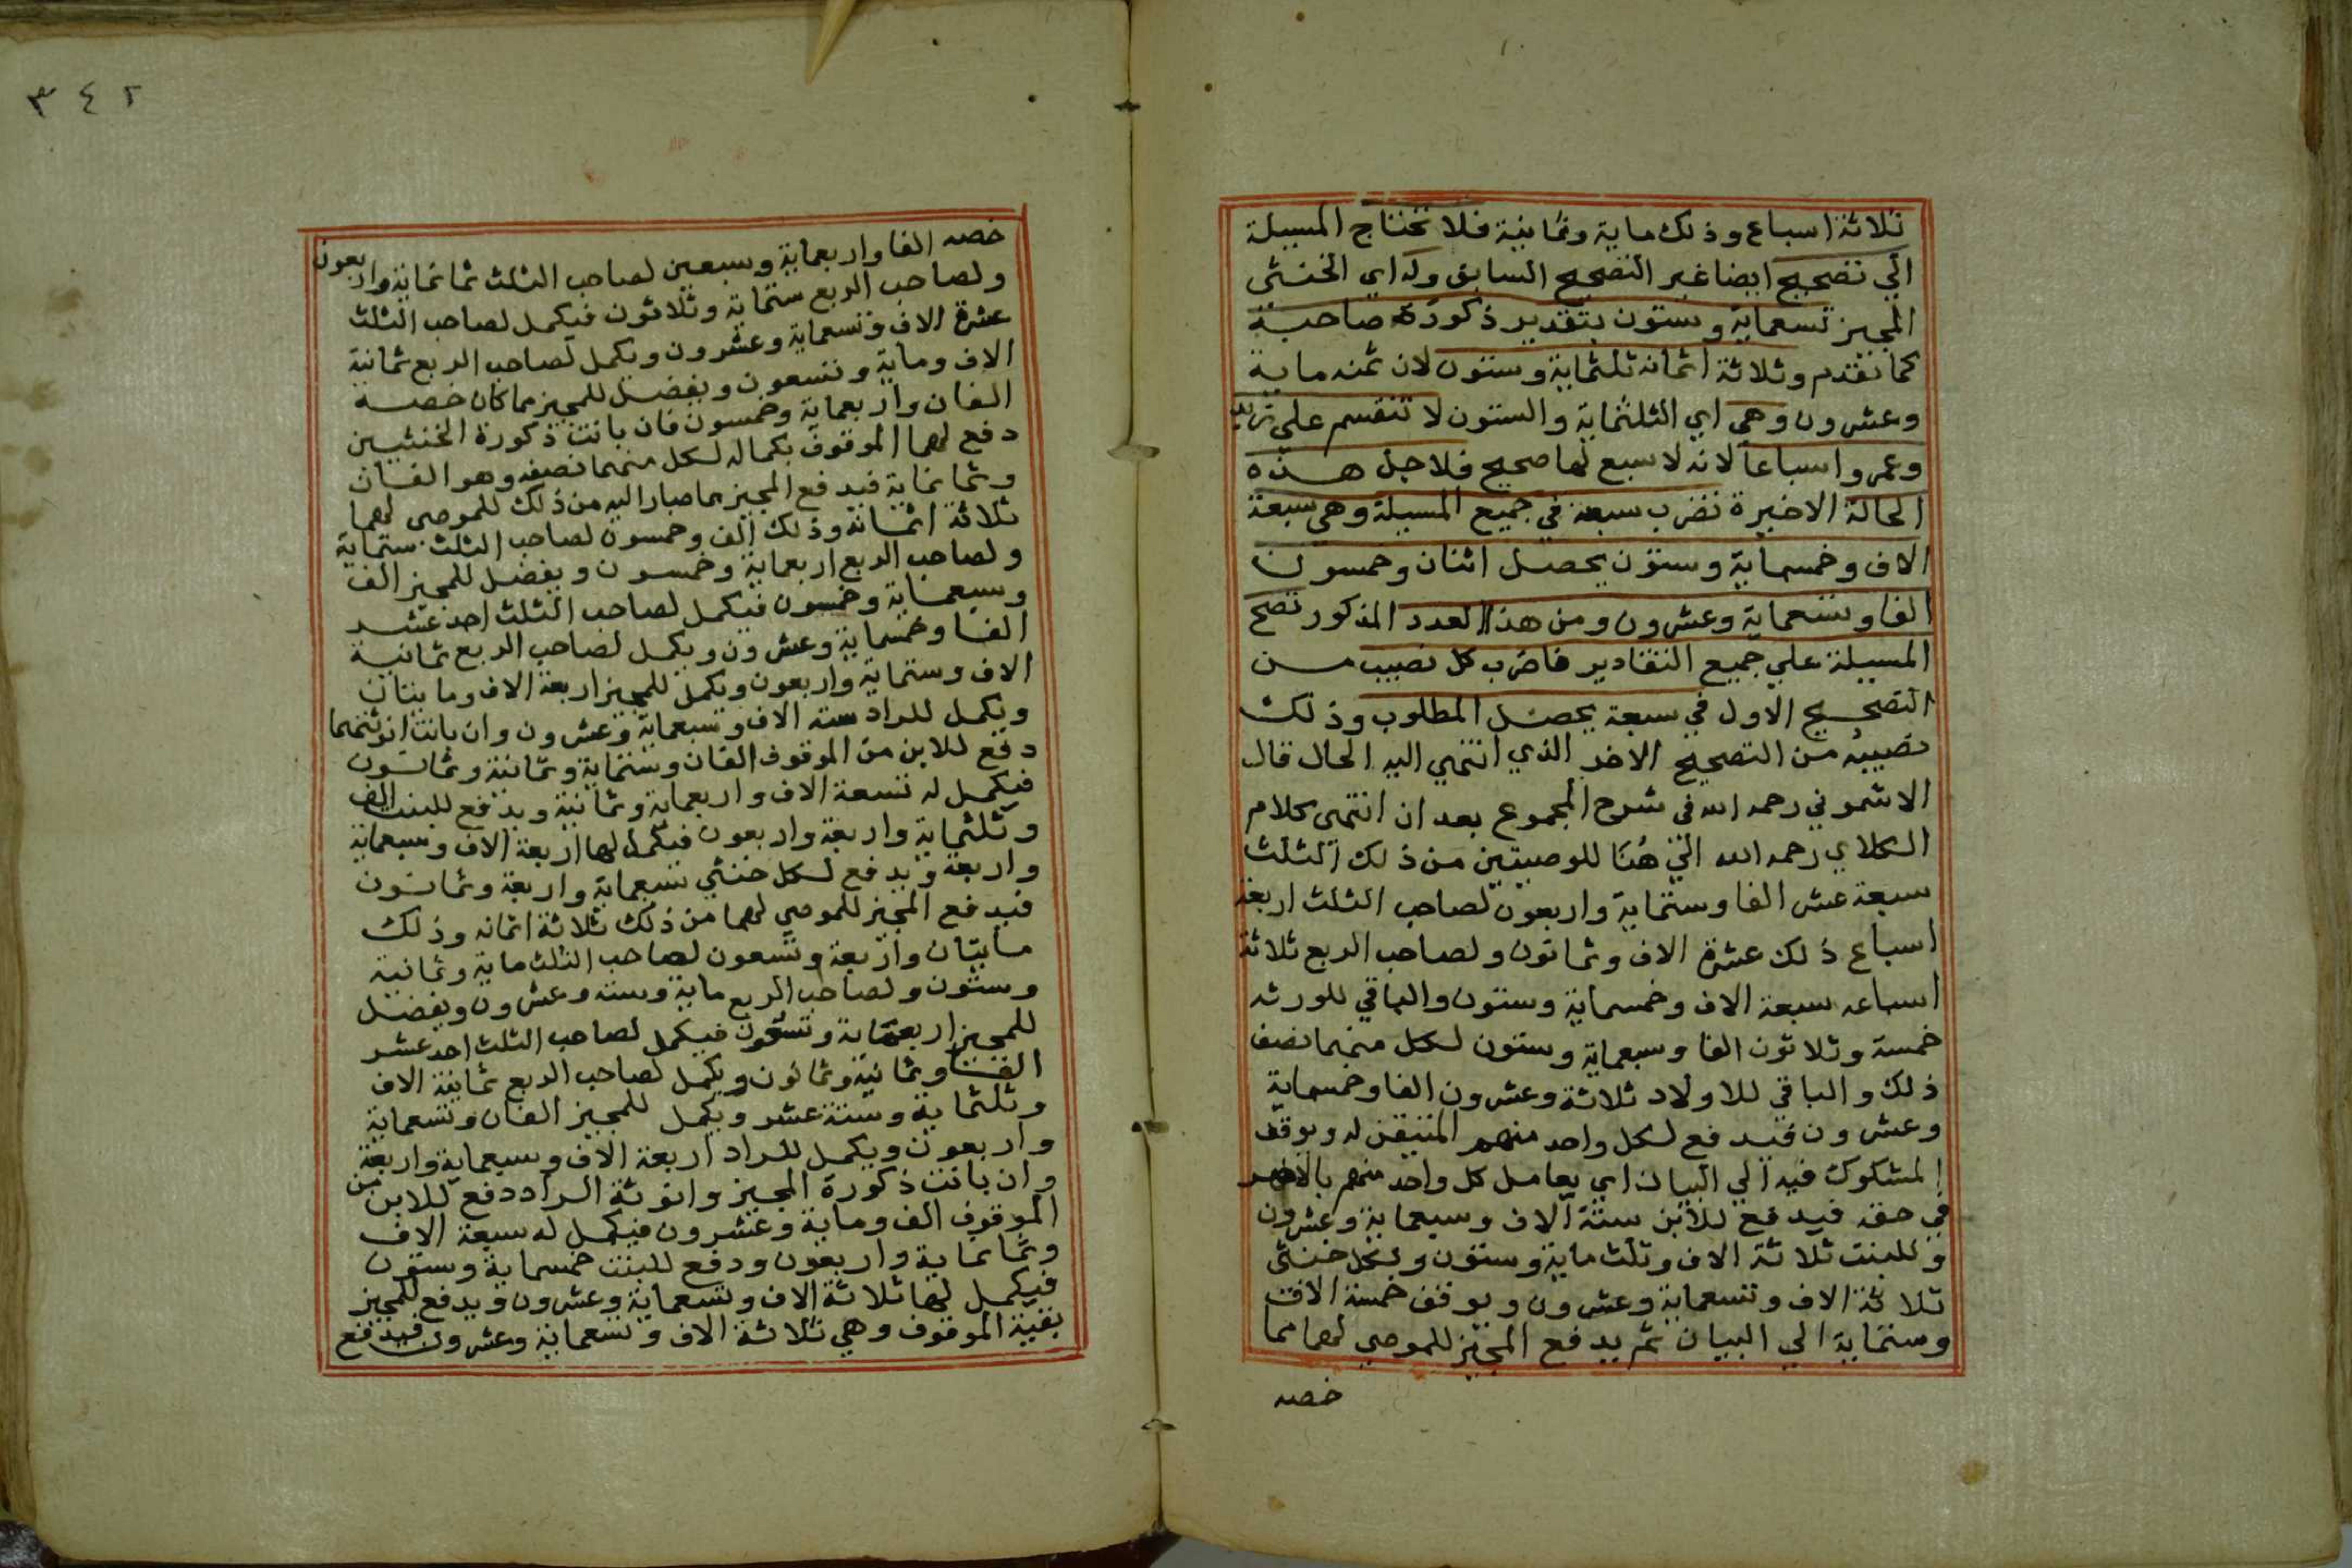 ثلاثة اسباع وذلك ماية وثمانية فلا تحتاج المسيلة
الي تصحيح ايضا غير التصحيح السابق وله اي الخنثي
المجيز تسعماية وستون بتقدير ذكورة صاحبة
كما تقدم وثلاثة اثمانه ثلثماية وستون لان ثمنه ماية
وعشرون وهي اي الثلثماية والستون لا تنقسم علي زيد
وعمرو اسباعا لانه لا سبع لها صحيح فلاجل هذه
الحالة الاخيرة تضرب سبعة في جميع المسيلة وهي سبعة
الاف وخمسماية وستون يحصل اثنان وخمسون
الفا وتسعماية وعشرون ومن هذا العدد المذكور تصح
المسيلة علي جميع التقادير فاضرب كل نصيب من
التصحيح الاول في سبعة يحصل المطلوب وذلك
نصيبه من التصحيح الاخر الذي انتهي اليه الحال قال
الاشموني رحمه الله في شرح المجموع بعد ان انتهى كلام
الكلاي رحمه الله الي هنا للوصيتين من ذلك الثلث
سبعة عشر الفا وستماية واربعون لصاحب الثلث اربعة
اسباع ذلك عشرة الاف وثمانون ولصاحب الربع ثلاثة
اسباعه سبعة الاف وخمسماية وستون والباقي للورثه
خمسة وثلاثون الفا وسبعماية وستون لكل منهما نصف
ذلك والباقي للاولاد ثلاثة وعشرون الفا وخمسماية
وعشرون فيدفع لكل واحد منهم المتيقن له ويوقف
المشكوك فيه الي البيان اي يعامل كل واحد منهم بالاضر
في حقه فيدفع للابن ستة الاف وسبعماية وعشرون
وللبنت ثلاثة الاف وثلث ماية وستون ولكل خنثى
ثلاثة الاف وتسعماية وعشرون ويوقف خمسة الاف
وستماية الي البيان ثم يدفع المجيز للموصي لهما مما
خصه
٣٤٢
خصه الفا واربعماية وسبعين لصاحب الثلث ثمانماية واربعون
ولصاحب الربع ستماية وثلاثون فيكمل لصاحب الثلث
عشرة الاف وتسعماية وعشرون ويكمل لصاحب الربع ثمانية
الاف وماية وتسعون ويفضل للمجيز مما كان خصه
الفان واربعماية وخمسون فان بانت ذكورة الخنثيين
دفع لهما الموقوف بكماله لكل منهما نصفه وهو الفان
وثمانماية فيدفع المجيز مما صار اليه من ذلك للموصي لهما
ثلاثة اثمانه وذلك الف وخمسون لصاحب الثلث ستماية
ولصاحب الربع اربعماية وخمسون ويفضل للمجيز الف
وسبعماية وخمسون فيكمل لصاحب الثلث احد عشر
الفا وخمسماية وعشرون ويكمل لصاحب الربع ثمانية
الاف وستماية واربعون ويكمل للمجيز اربعة الاف ومايتان
ويكمل للراد سته الاف وسبعماية وعشرون وان بانت انوثتهما
دفع للابن من الموقوف الفان وستماية وثمانية وثمانون
فيكمل له تسعة الاف واربعماية وثمانية ويدفع للبنت الف
وثلثماية واربعة واربعون فيكمل لها اربعة الاف وسبعماية
واربعة ويدفع لكل خنثي سبعماية واربعة وثمانون
فيدفع المجيز للموصي لهما من ذلك ثلاثة اثمانه وذلك
مايتان واربعة وتسعون لصاحب الثلث ماية وثمانية
وستون ولصاحب الربع ماية وسته وعشرون ويفضل
للمجيز اربعماية وتسعون فيكمل لصاحب الثلث احد عشر
الفا وثمانية وثمانون ويكمل لصاحب الربع ثمانية الاف
وثلثماية وستة عشر ويكمل للمجيز الفان وتسعماية
واربعون ويكمل للراد اربعة الاف وسبعماية واربعة
وان بانت ذكورة المجيز وانوثة الراد دفع للابن من
الموقوف الف وماية وعشرون فيكمل له سبعة الاف
وثمانماية واربعون ودفع للبنت خمسماية وستون
فيكمل لها ثلاثة الاف وتسعماية وعشرون ويدفع للمجيز
بقية الموقوف وهي ثلاثة الاف وتسعماية وعشرون فيدفع